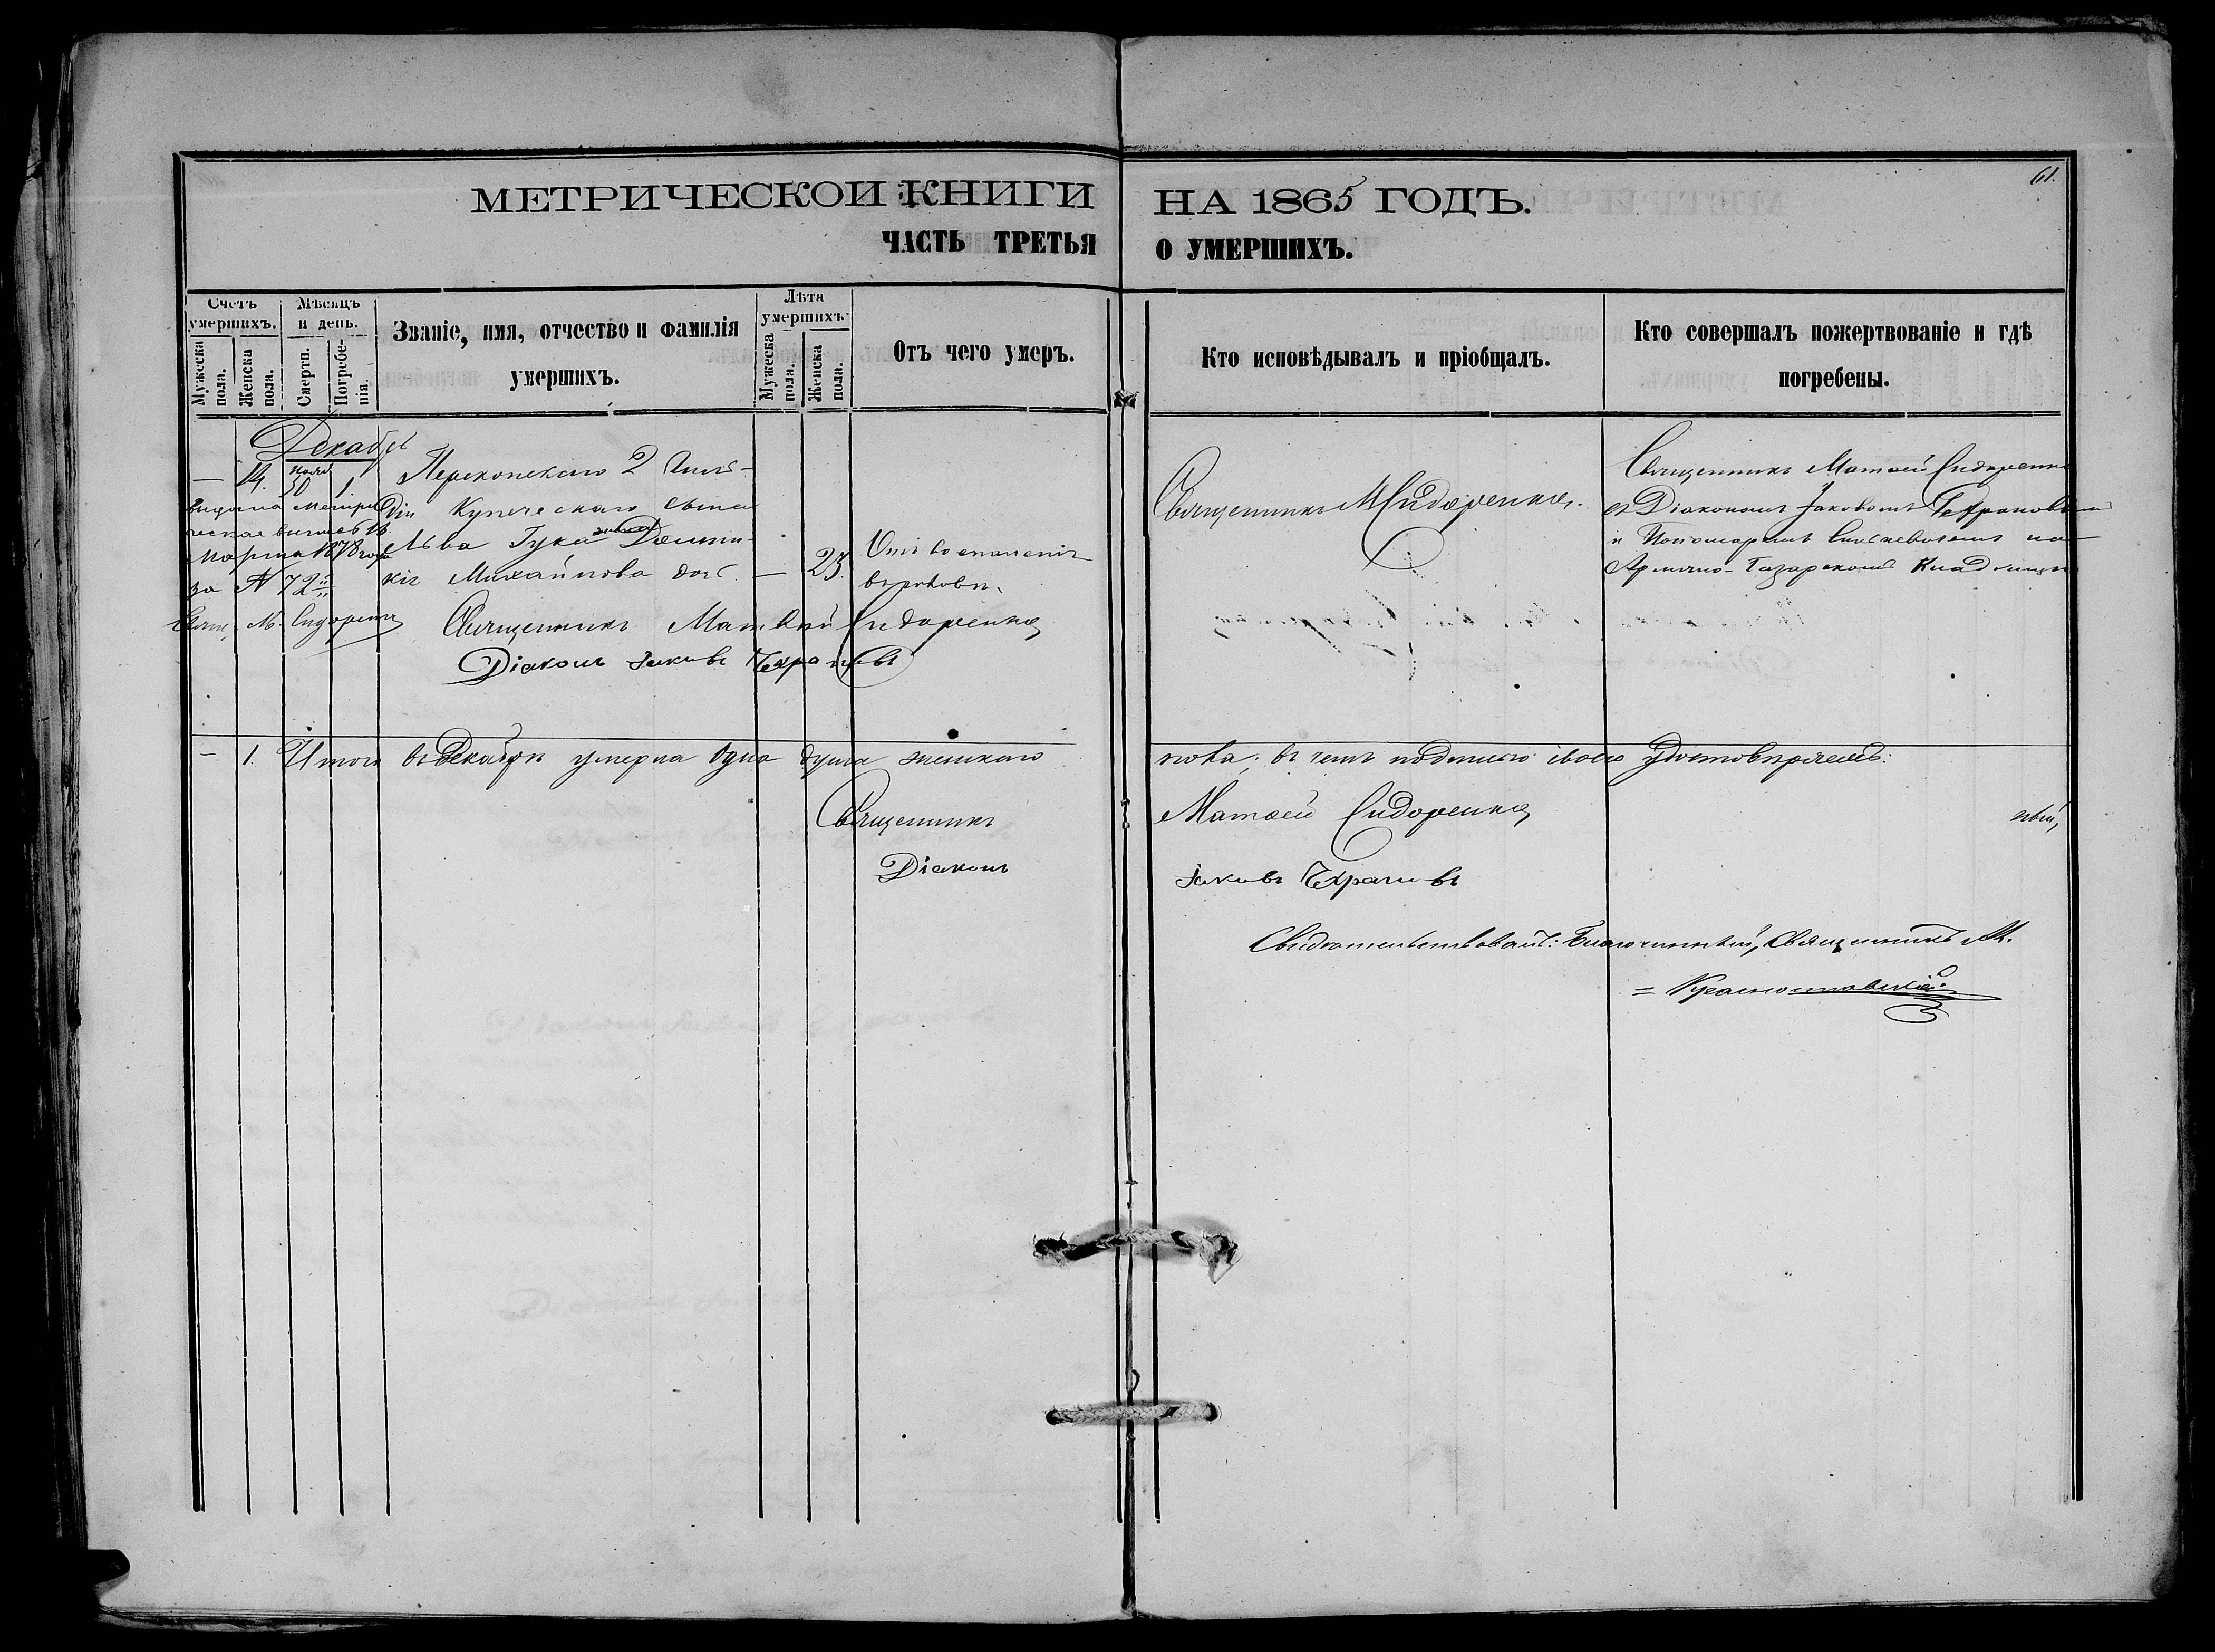 61.
МЕТРИЧЕСКОЙ КНИГИ НА 1865 ГОДЪ.
ЧАСТЬ ТРЕТЬЯ О УМЕРШИХЪ.
Счетъ умершихъ.
Мужеска пола.
Женска пола.
Мѣсяцъ и день.
Смерти.
Погребенія.
Званіе, имя, отчество и фамилія умершихъ.
Лѣта умершихъ.
Мужеска пола.
Женска пола.
Отъ чего умеръ.
Кто исповѣдывалъ и пріобщалъ.
Кто совершалъ пожертвованіе и гдѣ погребены.
Декабрь
— 14. нояб. 30 1.
Перекопскаго 2 Гиль-
діи Купеческаго сына
Льва Гука жена Домни-
кія Михайлова дочь. — 23.
Отъ воспаленія
Священникъ М Сидоренко.
Священникъ Матѳей Сидоренко
съ Діакономъ Іаковомъ
и Пономаремъ на
Армяно- Кладбищѣ
выдана метри
ческая выпись 16
Марта 1878 года
за № 72
Свящ. М. Сидоренко
Священникъ Матвей Сидоренко
Діаконъ Іаковъ
— 1. Итого въ Декабрѣ умерла одна душа женскаго пола; въ чемъ подписью своею удостовѣряемъ:
Священникъ Матѳей Сидоренко
ный,
Діаконъ Іаковъ
Свидѣтельствовалъ: Благочинный, Священникъ М.
=